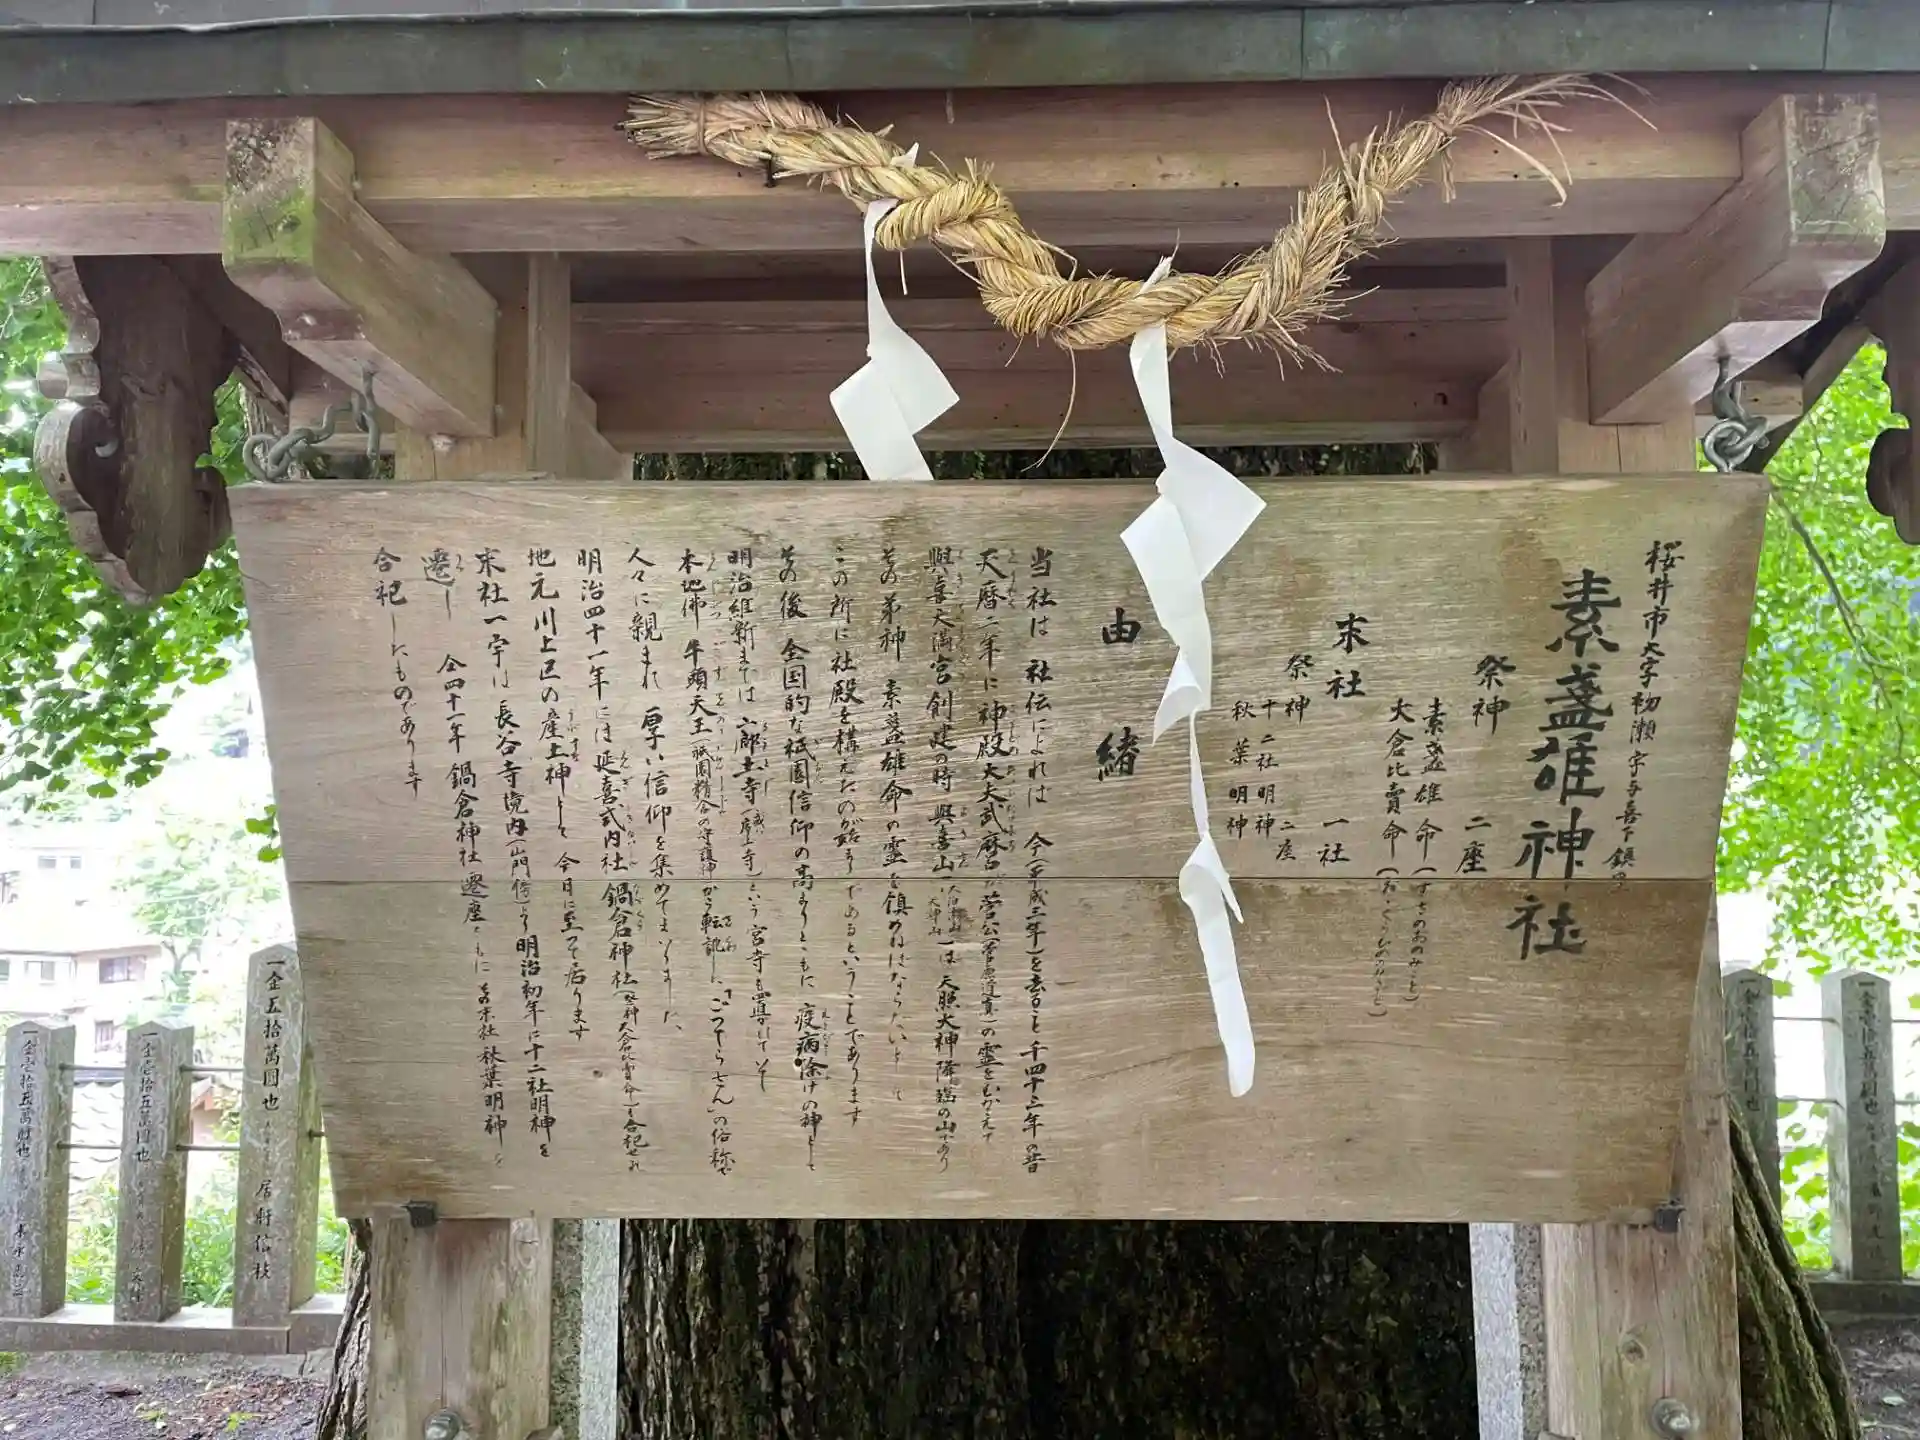 桜井市大字初瀬字与喜下鎮座
素盞雄神社
祭神 二座
素盞雄命(すさのおのみこと)
大倉比賣命(おゝくらひめのみこと)
末社 一社
祭神 二座
十二社明神
秋葉明神
由緒
当社は 社伝によれば 今(平成三年)を去ること千四十三年の昔
天暦二年に神殿大夫武麿が菅公(菅原道真)の霊をむかえて
與喜天満宮創建の時 與喜山 は 天照大神降臨の山であり
その弟神 素盞雄命の霊を鎮めねばならないとして
この所に社殿を構えたのが始まりであるということであります
その後 全国的な祇園信仰の高まりとともに 疫病除けの神として
明治維新までは 六廊土寺 という宮寺も置かれて
本地佛 牛頭天王(祇園精舎の守護神)から転訛した「ごってらせん」の俗称で
人々に親まれ 厚い信仰を集めてまいりました
明治四十一年には延喜式内社 鍋倉神社(祭神大倉比賣命)を合祀せられ
地元川上区の産土神として 今日に至って居ります
末社一宇は 長谷寺境内(山門傍)より明治初年に十二社明神を
遷し 仝四十一年鍋倉神社遷座とともにその末社 秋葉明神を
合祀したものであります
一金五拾萬圓也
一金壱拾五萬圓也
一金壱拾五萬圓也
一金壱拾五萬圓也
一金壱拾五萬圓也